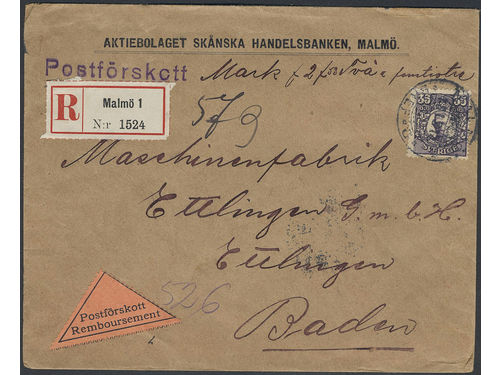 AKTIEBOLAGET SKÅNSKA HANDELSBANKEN, MALMÖ.
Postförskott Mark f 2 för Två &
R Malmö 1
N:r 1524
579
35 35
SVERIGE
Maschinenfabrik
Ettlingen G.m.b.H.
Ettlingen
Baden
526
Postförskott
Remboursement